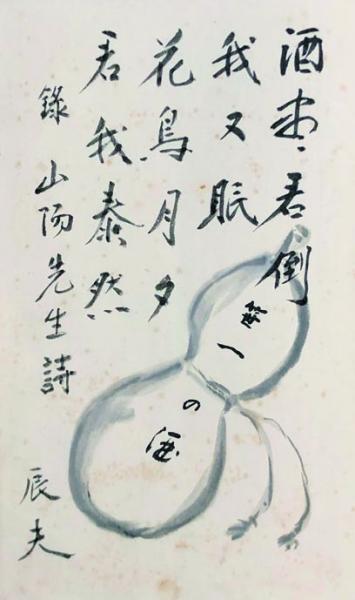 酒尽君倒
我又眠
花鳥月夕
君我泰然
錄山陽先生詩
辰夫
一
の酒